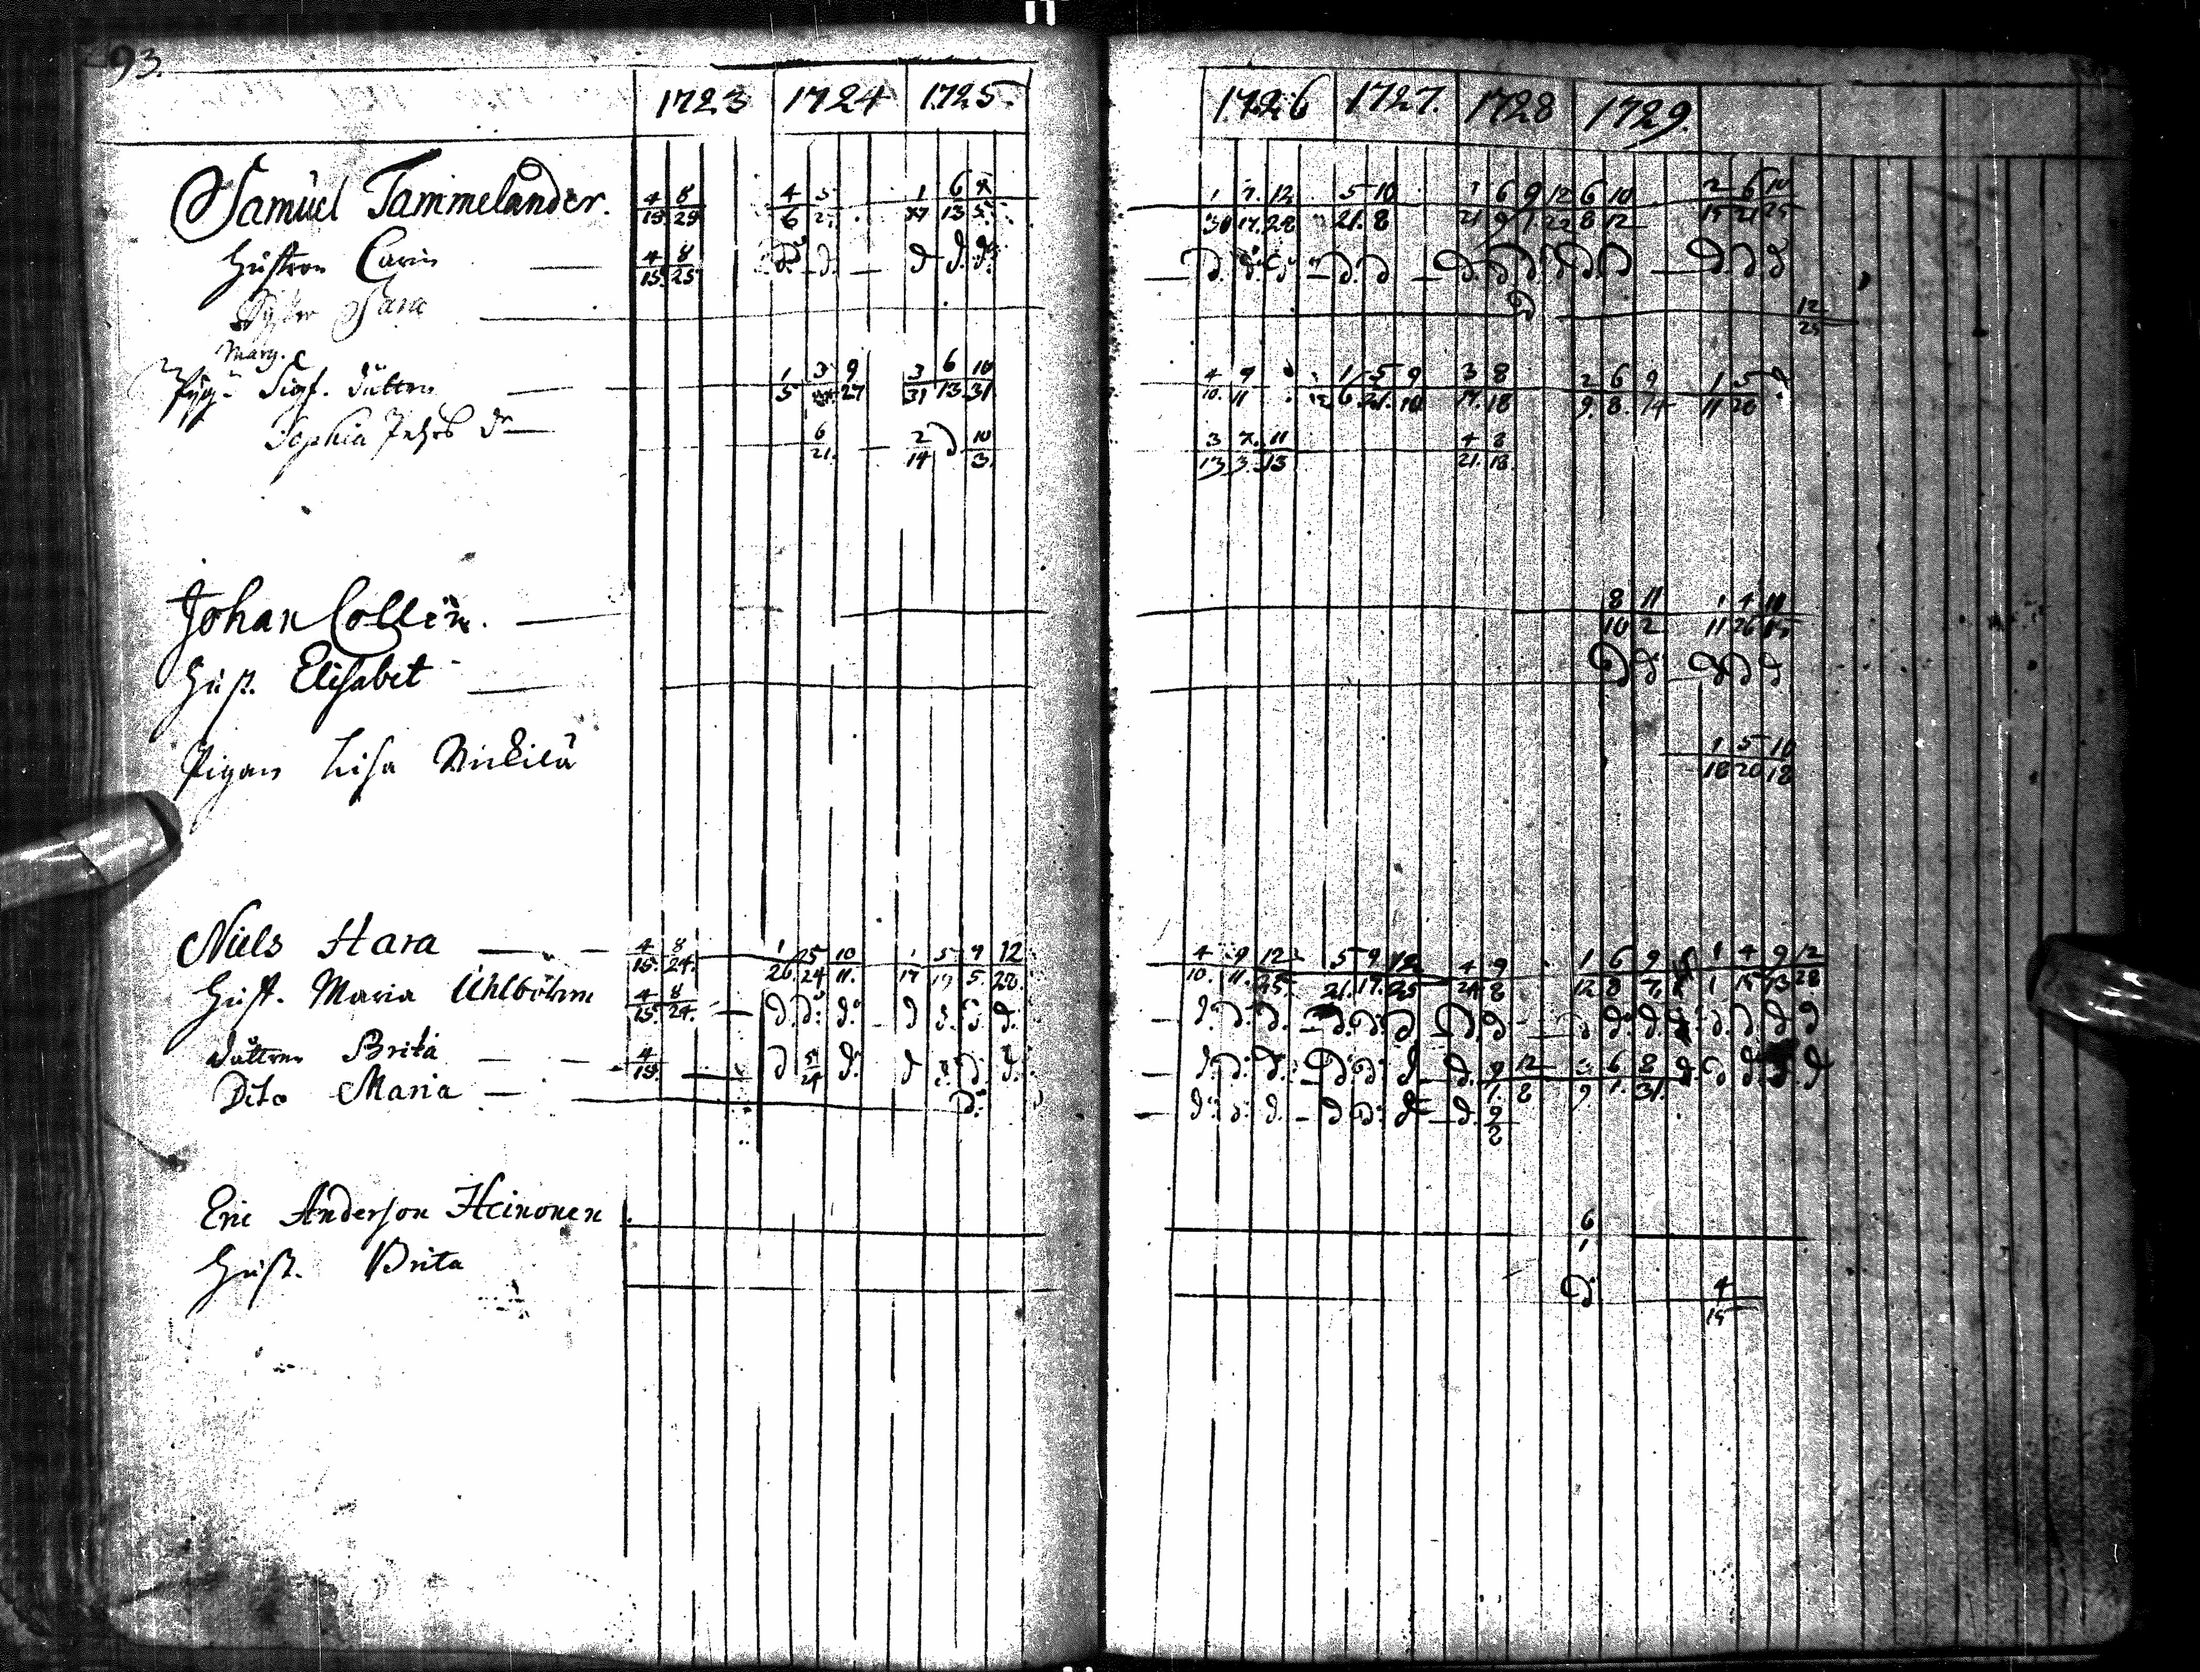 93.
1723 1724 1725. 1726 1727. 1728 1729.
Samuel Tammelander. 4/15 8/25 4/6 1/30 7/17 12/28 5/21 10/8 6/9 9/1 12/22 6/8 10/12 2/15 6/21 10/25
Hustron Carin 4/15 8/25 d. d. d d. d. d. d. d. d. d d. d. d. d. d d. d d
Syster Sara d 12/25
Marg.
Pig. Sigf. dåtter 1/5 9/27 3/31 6/13 10/31 4/10 9/11 1/6 5/21 9/10 3/17 8/18 2/9 6/8 9/14 1/11 5/20
Sophia d 6/21 2/14 d 10/3 3/13 7/3 11/13 4/21 8/18
Johan Collin. 8/10 11/2 1/11 4/26
Hust. Elisabet d d d d d
Pigan Lisa 1/18 5/20 10/18
Niels Hara 4/15 8/24 1/26 5/24 10/11 1/17 5 9/5 12/28 4/10 9/11 12/25 5/21 9/17 12/25 4/24 9/8 1/12 6/8 9/7 1/1 4/15 9/13 12/28
Hust. Maria Uhlbohm 4/15 8/24 d. d. d. d d. d. d. d. d. d. d. d. d d. d. d d. d. d. d. d d
dåttren Brita 4/15 d 5/24 d. d d. d. d. d. d. d. d. d. d d. 9/1 12/8 6/1 8/31 d. d d d. d
Dito Maria d. d. d. d. d d. d d. 9/2
Eric Anderson Heinonen 6/1
Hust. Brita d 4/15